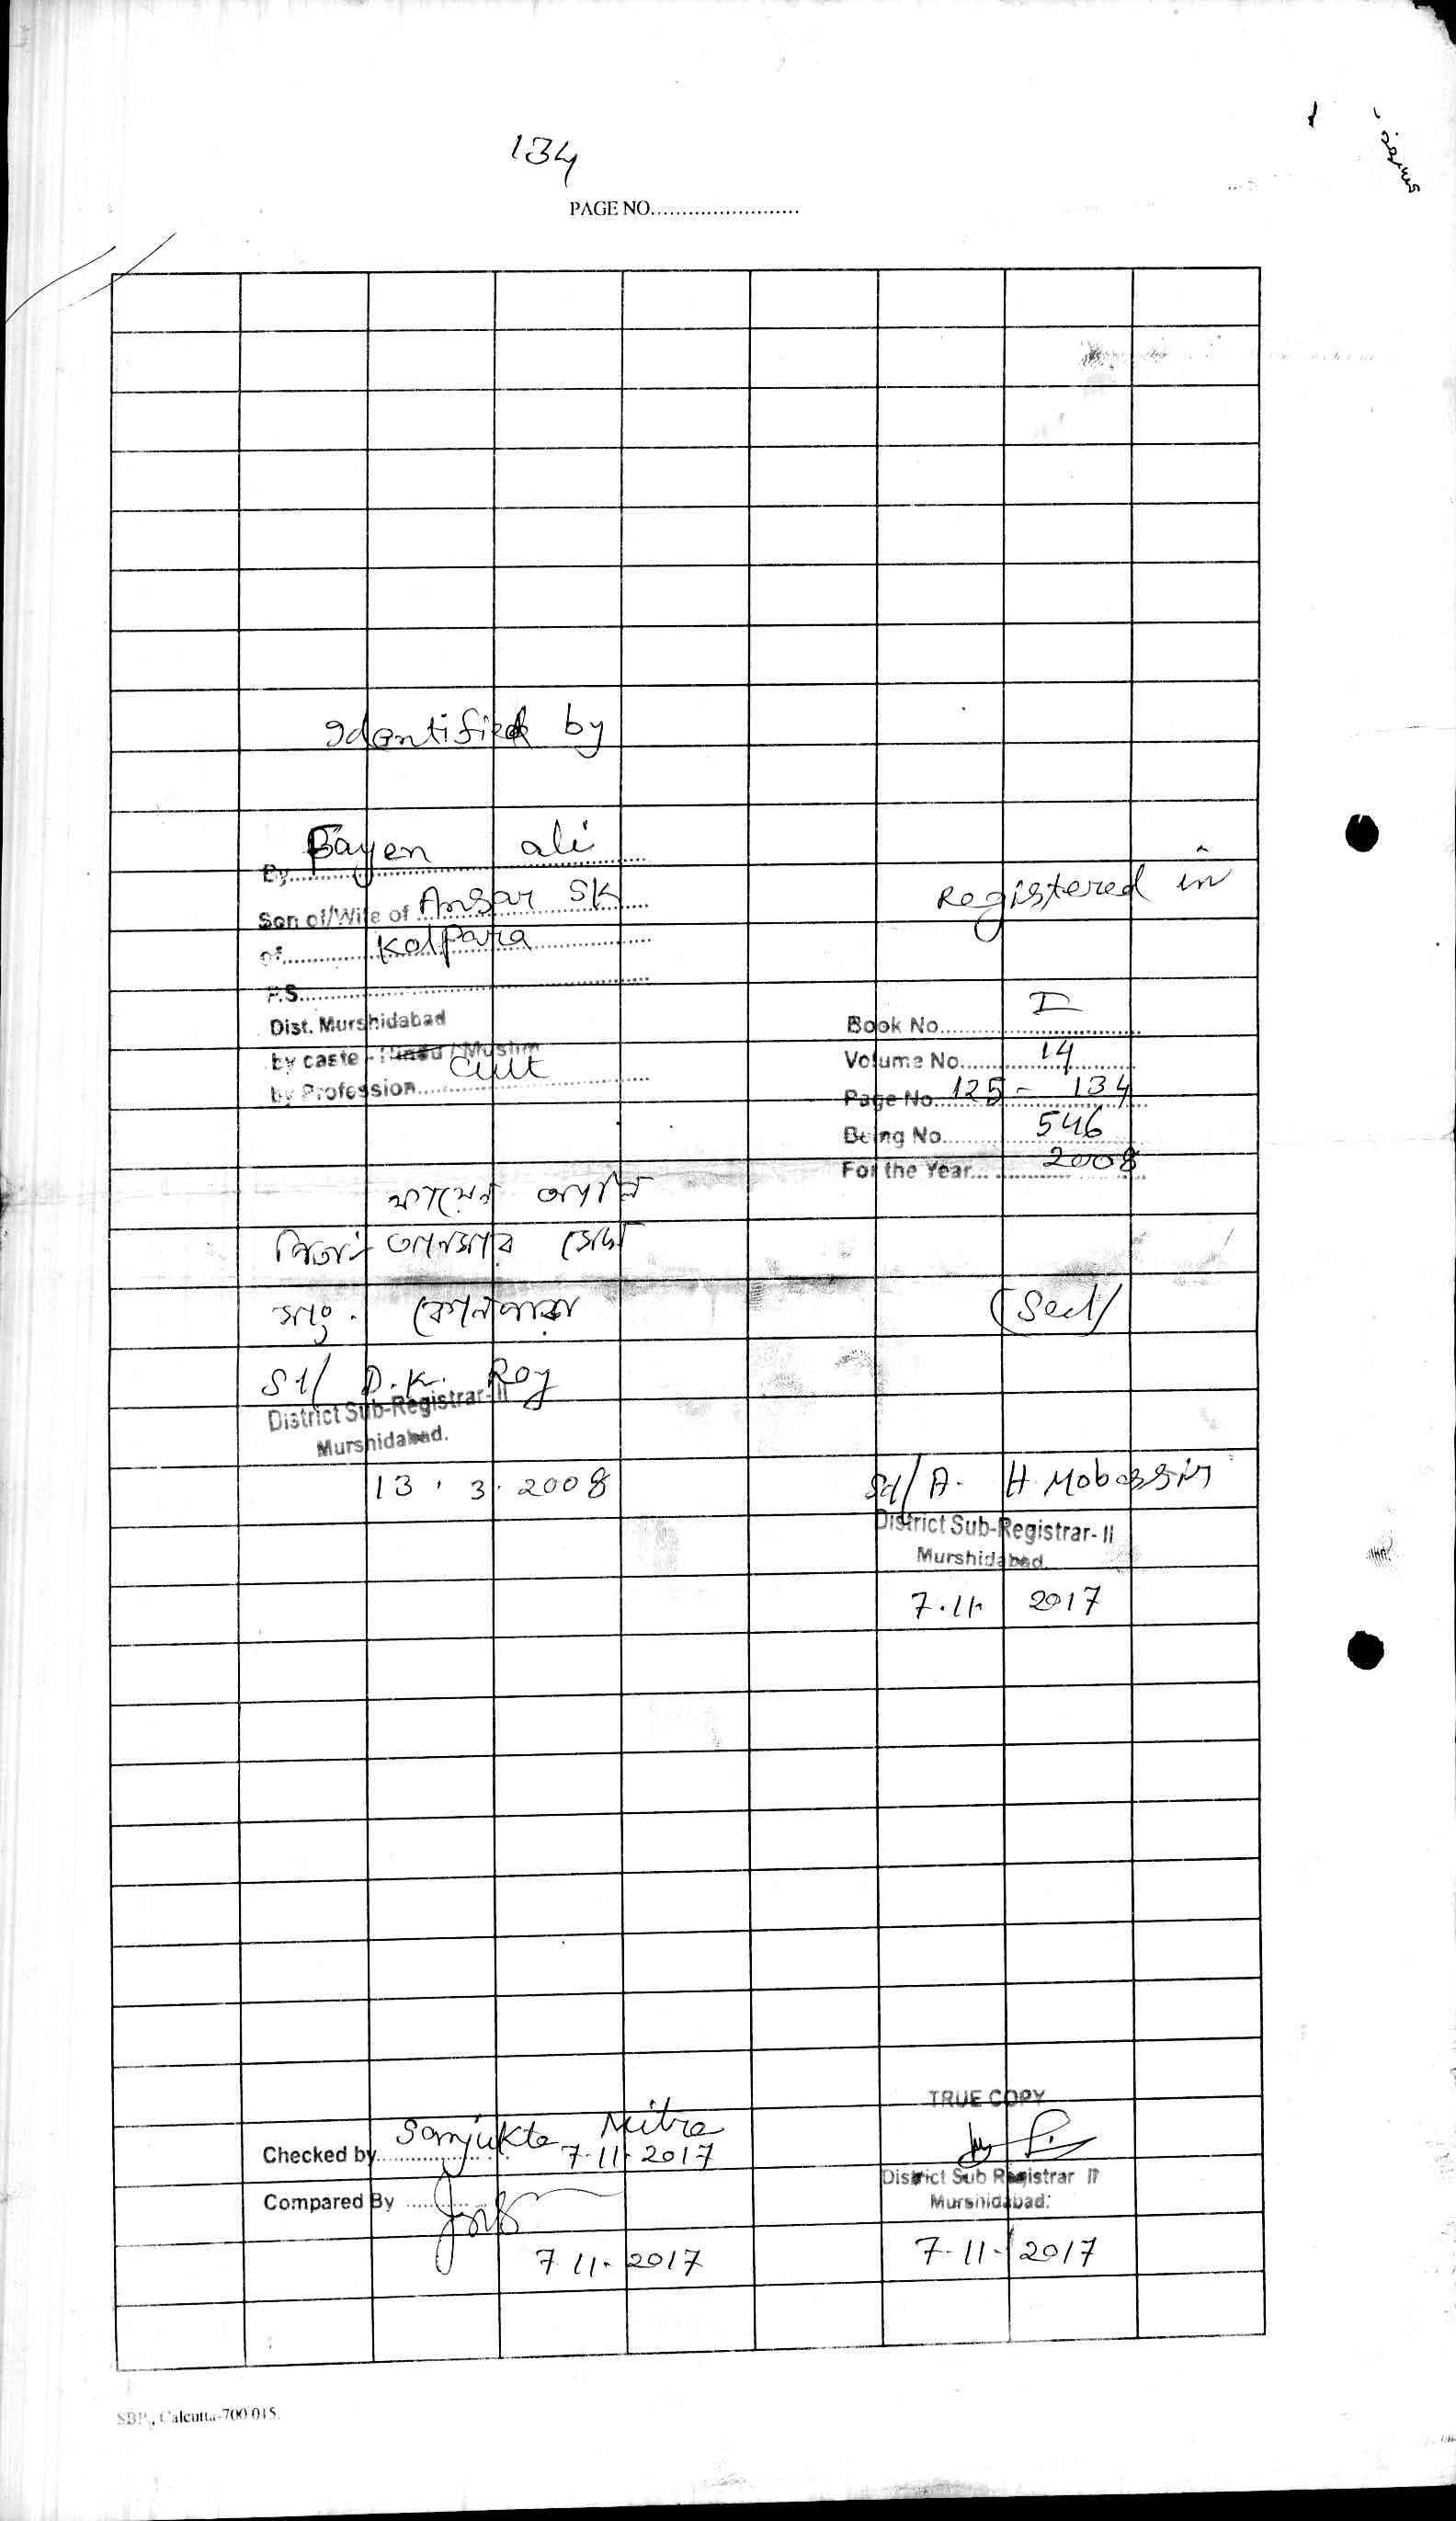 134
PAGE NO........................
Identified by
By Fayen ali
Son of/Wife of Ansar SK
of Kolpara
P.S.
Dist. Murshidabad
by caste - Hindu / Muslim
by Profession Cult
ফায়েন আলি
পিতা:- আনসার সেখ
সাং. কোলপাড়া
Sd/ D.K. Roy
District Sub-Registrar-II
Murshidabad.
13.3.2008
Registered in
Book No. I
Volume No. 14
Page No. 125 - 134
Being No. 546
For the Year 2008
(Seal)
Sd/ A. H. Mobassir
District Sub-Registrar-II
Murshidabad.
7.11.2017
Checked by Sanjukta Mitra
7-11-2017
Compared By
7.11.2017
TRUE COPY
District Sub Registrar II
Murshidabad.
7-11-2017
SBP., Calcutta-700 015.